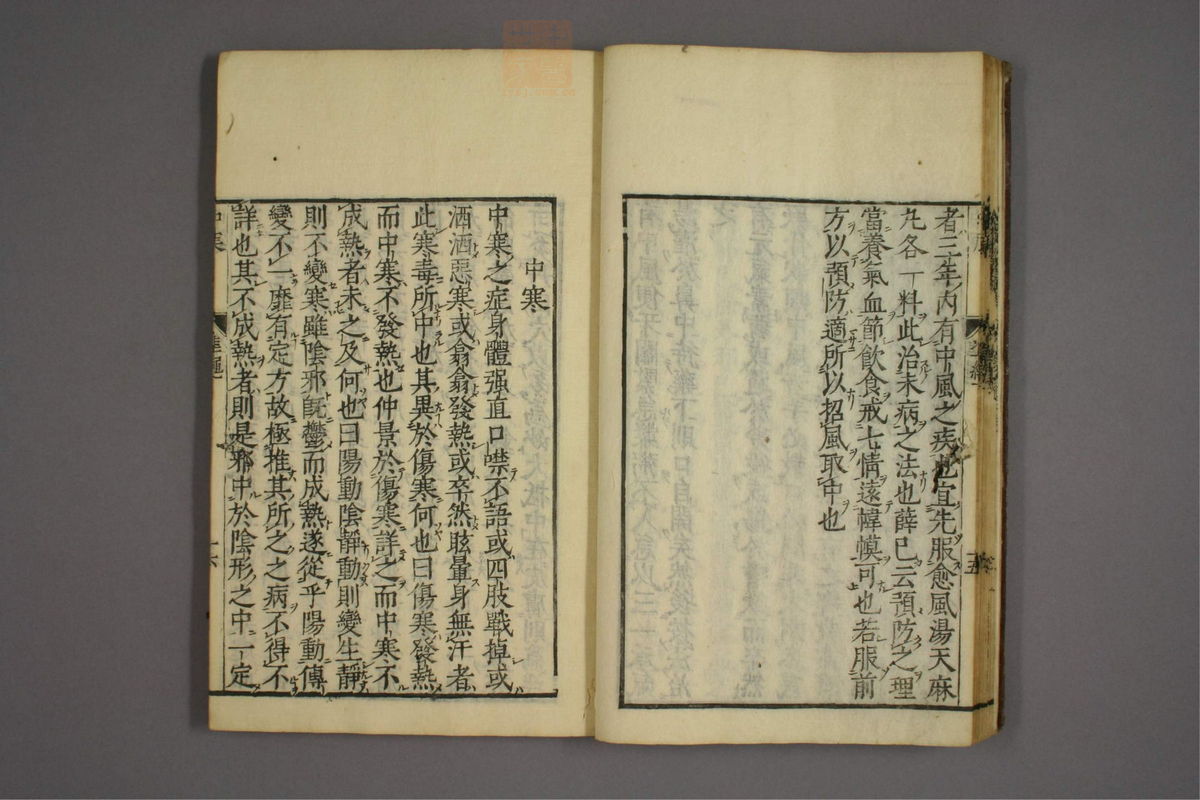 者三年内有中風之疾也宜先服愈風湯天麻
丸各一料此治未病之法也薛已云預防之理
當養氣血節飲食戒七情遠幃幙可也若服前
方以預防適所以招風取中也
五
中寒
中寒之症身體强直口噤不語或四肢戰掉或
洒洒惡寒或翕翕發熱或卒然眩暈身無汗者
此寒毒所中也其異於傷寒何也曰傷寒發熱
而中寒不發熱也仲景於傷寒詳之而中寒不
成熱者未之及何也曰陽動陰靜動則變生靜
則不變寒雖陰邪既鬱而成熱遂從乎陽動傳
變不一靡有定方故極推其所之之病不得不
詳也其不成熱者則是邪中於陰形之中一定
中寒
六